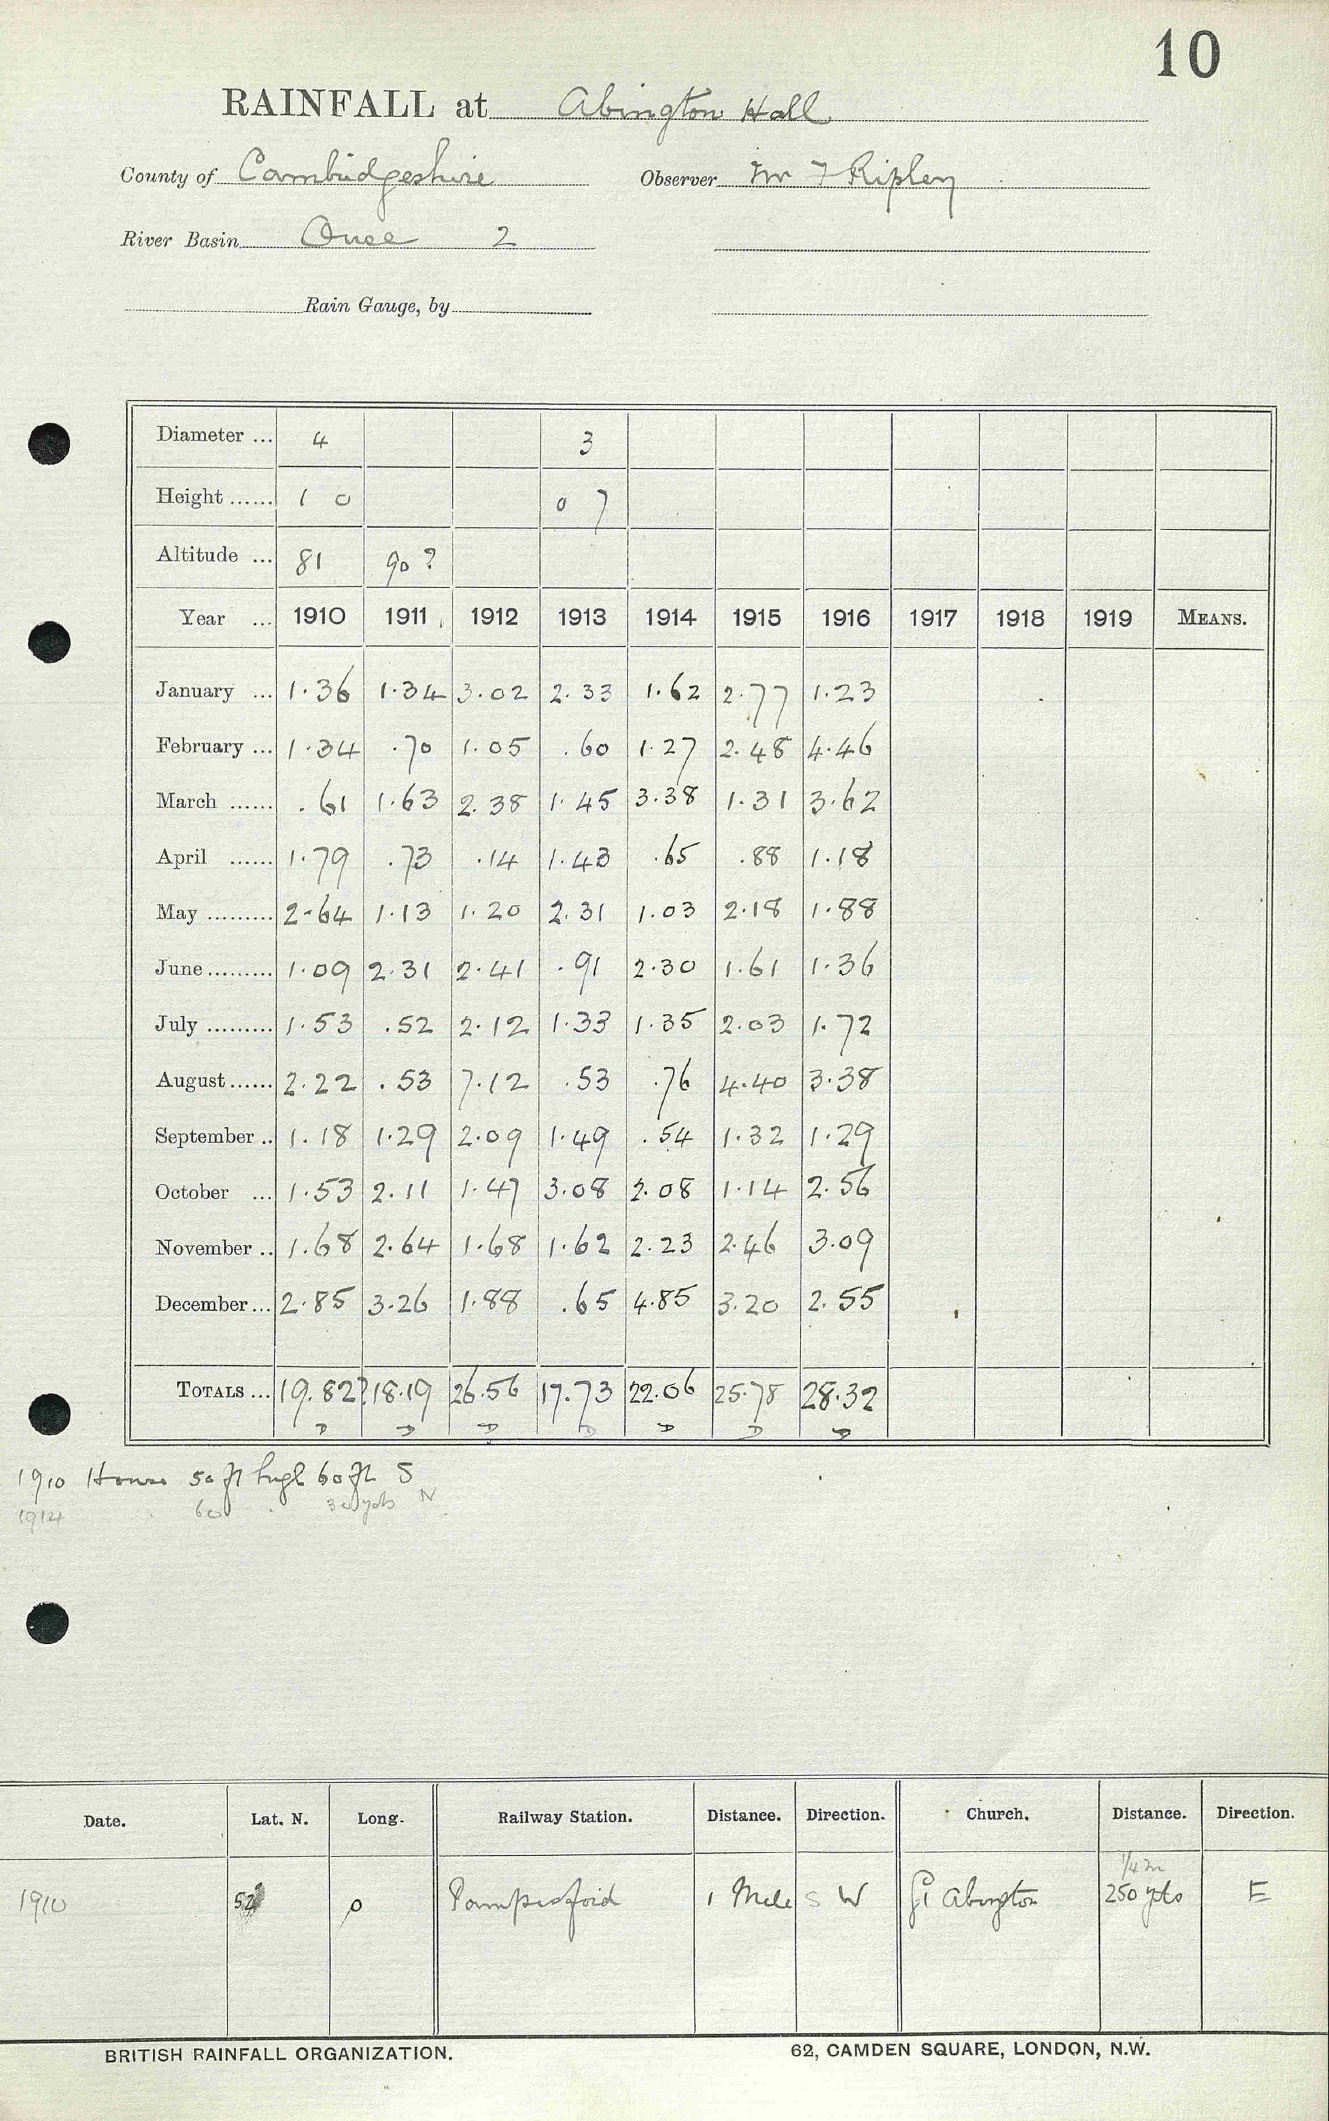 10
RAINFALL at Abington Hall
County of Cambridgeshire Observer Mr F Ripley
River Basin Ouse 2
Rain Gauge, by
Diameter ... 4 3
Height ...... 1 0 0 7
Altitude ... 81 90?
Year ... 1910 1911 1912 1913 1914 1915 1916 1917 1918 1919 MEANS.
January ... 1.36 1.34 3.02 2.33 1.62 2.77 1.23
February ... 1.34 .70 1.05 .60 1.27 2.48 4.46
March ...... .61 1.63 2.38 1.45 3.38 1.31 3.62
April ...... 1.79 .73 .14 1.43 .65 .88 1.18
May ......... 2.64 1.13 1.20 2.31 1.03 2.18 1.88
June ......... 1.09 2.31 2.41 .91 2.30 1.61 1.36
July ......... 1.53 .52 2.12 1.33 1.35 2.03 1.72
August ...... 2.22 .53 7.12 .53 .76 4.40 3.38
September .. 1.18 1.29 2.09 1.49 .54 1.32 1.29
October ... 1.53 2.11 1.47 3.08 2.08 1.14 2.56
November .. 1.68 2.64 1.68 1.62 2.23 2.46 3.09
December ... 2.85 3.26 1.88 .65 4.85 3.20 2.55
TOTALS ... 19.82? 18.19 26.56 17.73 22.06 25.78 28.32
D D D D D D D
1910 House 50 ft high 60 ft S
1914 60 30 yds N
Date. Lat. N. Long. Railway Station. Distance. Direction. Church. Distance. Direction.
1/4 m
1910 52 0 Pampisford 1 Mile S W Gt Abington 250 yds E
BRITISH RAINFALL ORGANIZATION. 62, CAMDEN SQUARE, LONDON, N.W.